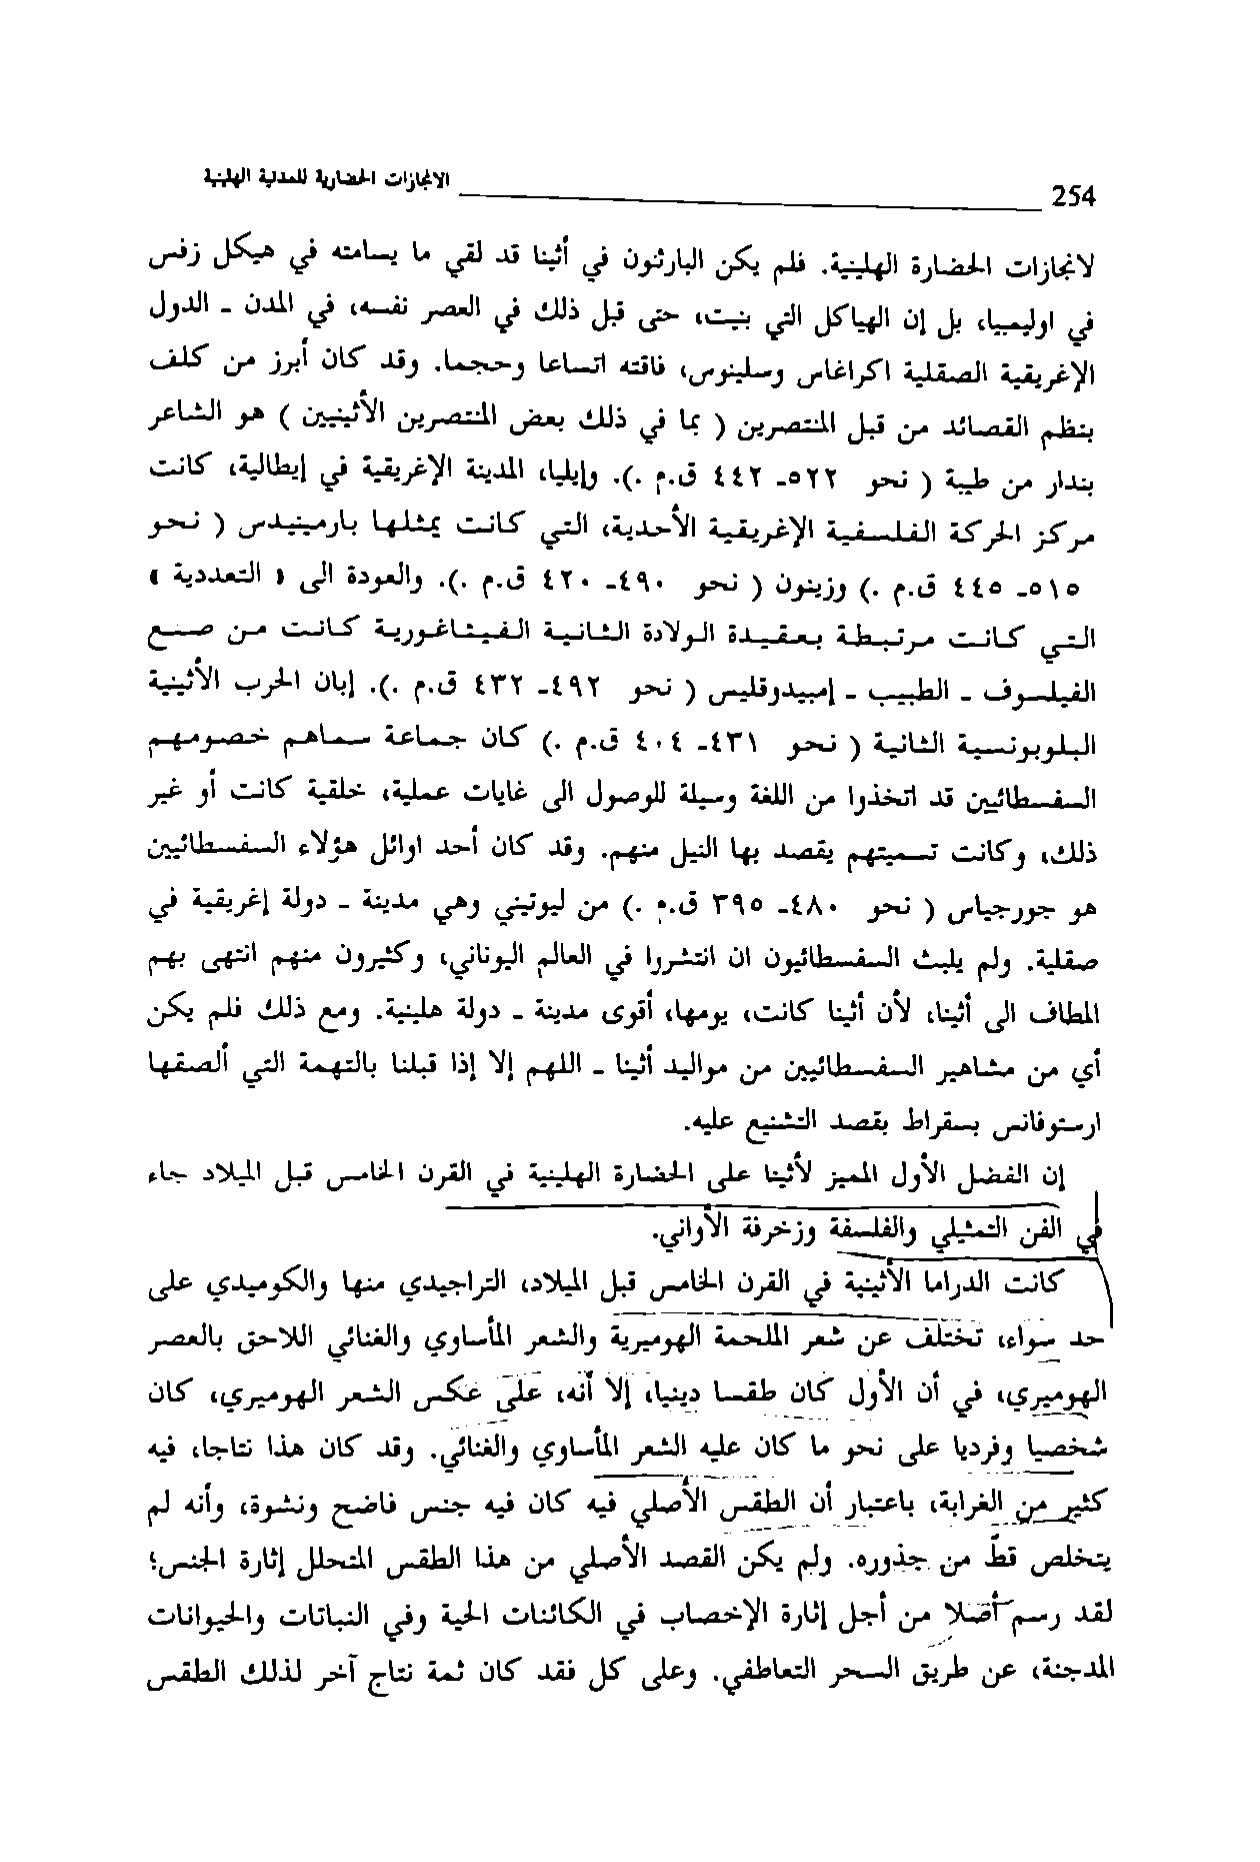 254
الانجازات الحضارية للمدنية الهلينية
لانجازات الحضارة الهلينية. فلم يكن البارثنون في أثينا قد لقي ما يسامته في هيكل زفس
في اوليمبيا، بل إن الهياكل التي بنيت، حتى قبل ذلك في العصر نفسه، في المدن - الدول
الإغريقية الصقلية اكراغاس وسلينوس، فاقته اتساعا وحجما. وقد كان أبرز من كلف
بنظم القصائد من قبل المنتصرين ( بما في ذلك بعض المنتصرين الأثينيين ) هو الشاعر
بندار من طيبة ( نحو ٥٢٢- ٤٤٢ ق.م .). وإيليا، المدينة الإغريقية في إيطالية، كانت
مركز الحركة الفلسفية الإغريقية الأحدية، التي كانت يمثلها بارمينيدس ( نحو
٥١٥- ٤٤٥ ق.م .) وزينون ( نحو ٤٩٠- ٤٢٠ ق.م .). والعودة الى « التعددية »
التي كانت مرتبطة بعقيدة الولادة الثانية الفيثاغورية كانت من صنع
الفيلسوف - الطبيب - إمبيدوقليس ( نحو ٤٩٢- ٤٣٢ ق.م .). إبان الحرب الأثينية
البلوبونسية الثانية ( نحو ٤٣١- ٤٠٤ ق.م .) كان جماعة سماهم خصومهم
السفسطائيين قد اتخذوا من اللغة وسيلة للوصول الى غايات عملية، خلقية كانت أو غير
ذلك، وكانت تسميتهم يقصد بها النيل منهم. وقد كان أحد اوائل هؤلاء السفسطائيين
هو جورجياس ( نحو ٤٨٠- ٣٩٥ ق.م .) من ليوتيني وهي مدينة - دولة إغريقية في
صقلية. ولم يلبث السفسطائيون ان انتشروا في العالم اليوناني، وكثيرون منهم انتهى بهم
المطاف الى أثينا، لأن أثينا كانت، يومها، أقوى مدينة - دولة هلينية. ومع ذلك فلم يكن
أي من مشاهير السفسطائيين من مواليد أثينا - اللهم إلا إذا قبلنا بالتهمة التي ألصقها
ارستوفانس بسقراط بقصد التشنيع عليه.
إن الفضل الأول المميز لأثينا على الحضارة الهلينية في القرن الخامس قبل الميلاد جاء
في الفن التمثيلي والفلسفة وزخرفة الأواني.
كانت الدراما الأثينية في القرن الخامس قبل الميلاد، التراجيدي منها والكوميدي على
حد سواء، تختلف عن شعر الملحمة الهوميرية والشعر المأساوي والغنائي اللاحق بالعصر
الهوميري، في أن الأول كان طقسا دينيا، إلا أنه، على عكس الشعر الهوميري، كان
شخصيا وفرديا على نحو ما كان عليه الشعر المأساوي والغنائي. وقد كان هذا نتاجا، فيه
كثير من الغرابة، باعتبار أن الطقس الأصلي فيه كان فيه جنس فاضح ونشوة، وأنه لم
يتخلص قطّ من جذوره. ولم يكن القصد الأصلي من هذا الطقس المتحلل إثارة الجنس؛
لقد رسم أصلا من أجل إثارة الإخصاب في الكائنات الحية وفي النباتات والحيوانات
المدجنة، عن طريق السحر التعاطفي. وعلى كل فقد كان ثمة نتاج آخر لذلك الطقس